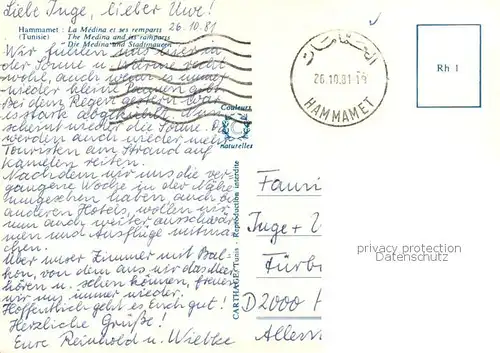 Liebe Inge, lieber Uwe!
26.10.81
Hammamet : La Médina et ses remparts
(Tunisie) The Medina and its ramparts
Die Medina und Stadtmauern
Wir fühlen uns hier in
der Sonne u. Wärme recht
wohl, auch wenn es immer
wieder kleine gibt.
Bei dem Regen gestern war
es stark abgekühlt. Nun
scheint wieder die Sonne. Da
werden auch wieder mehr
Touristen am Strand auf
Kamelen reiten.
Nachdem wir uns die ver-
gangene Woche in der Nähe
umgesehen haben, auch
anderen Hotels, wollen wir
nun auch weiter ausschwär-
men und Ausflüge mitma-
chen.
Über unser Zimmer mit Bal-
kon, von dem aus wir das Meer
hören u. sehen können, freuen
wir uns immer wieder.
Hoffentlich geht es Euch gut!
Herzliche Grüße!
Eure Reinhold u. Wiebke
Couleurs
naturelles
CARTHAGE / Tunis - Reproduction interdite
الحمامات
26.10.81-19
HAMMAMET
Rh 1
Fami
Inge +
Fürb
D2000
Allem
privacy protection
Datenschutz